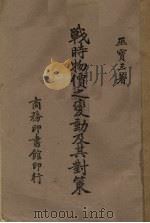 巫寶三著
戰時物價之變動及其對策
商務印書館印行